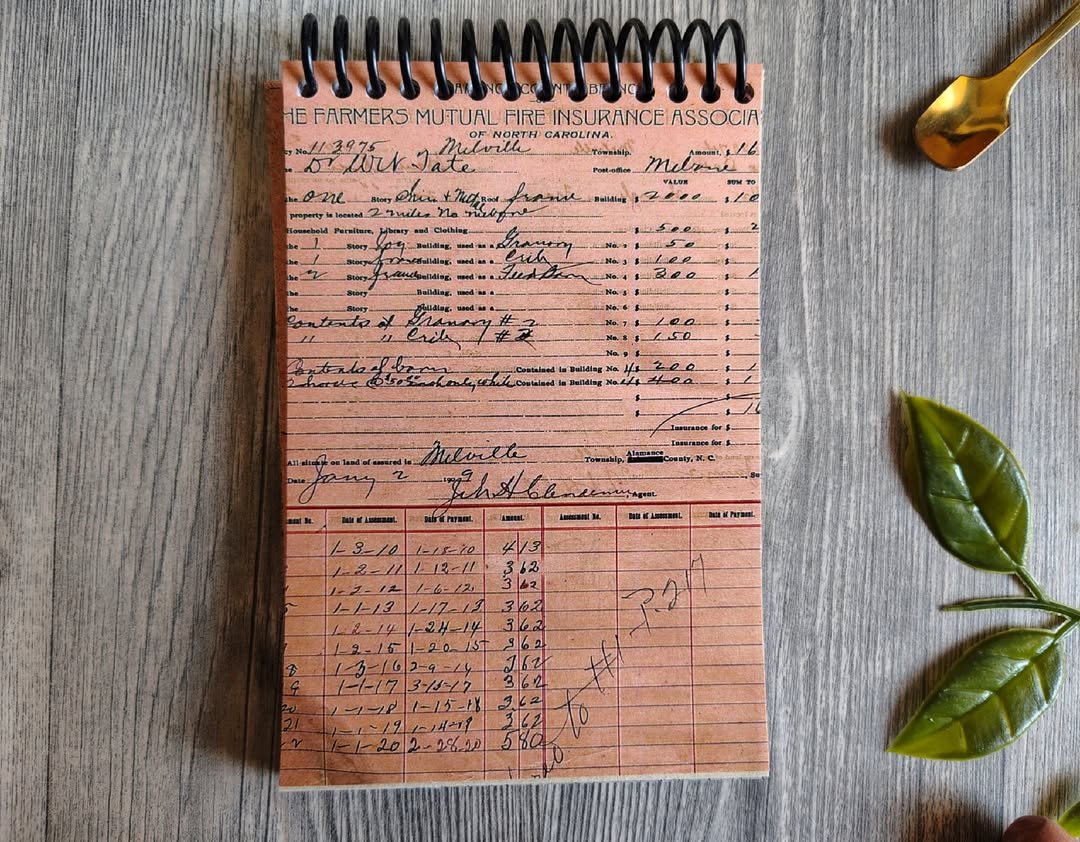 HE FARMERS MUTUAL FIRE INSURANCE ASSOCIA
OF NORTH CAROLINA.
cy No. 113975 Melville Township. Amount, $ 16
e Dr. W N Tate Post-office Mebane
VALUE SUM TO
the one Story & Metal Roof frame Building $ 2000 $ 10
property is located 2 miles No Mebane
Household Furniture, Library and Clothing $ 500 $ 2
the 1 Story Log Building, used as a Granary No. 2 $ 50 $
the 1 Story frame Building, used as a Crib No. 3 $ 100 $
the 2 Story frame Building, used as a Feed Barn No. 4 $ 300 $ 1
the Story Building, used as a No. 5 $ $
the Story Building, used as a No. 6 $ $
Contents of Granary # 2 No. 7 $ 100 $
" " Crib # No. 8 $ 150 $
No. 9 $ $
Contents of barn Contained in Building No. 4 $ 200 $ 1
only while Contained in Building No. 4 $ 400 $ 1
$ $
$ $ 16
Insurance for $
Insurance for $
All situate on land of assured in Melville Township, Alamance County, N. C.
Date Jany 2 1909 Su
Jno H Clendenin Agent.
ment No. Date of Assessment. Date of Payment. Amount. Assessment No. Date of Assessment. Date of Payment.
1-3-10 1-15-10 4 13
1-2-11 1-12-11 3 62
1-2-12 1-6-12 3 62
1-1-13 1-17-13 3 62
1-2-14 1-24-14 3 62
1-2-15 1-20-15 3 62
8 1-3-16 2-9-16 3 62
9 1-1-17 3-15-17 3 62
20 1-1-18 1-15-18 3 62
21 1-1-19 1-14-19 3 62
2 1-1-20 2-28-20 5 80
to #1 P. 217